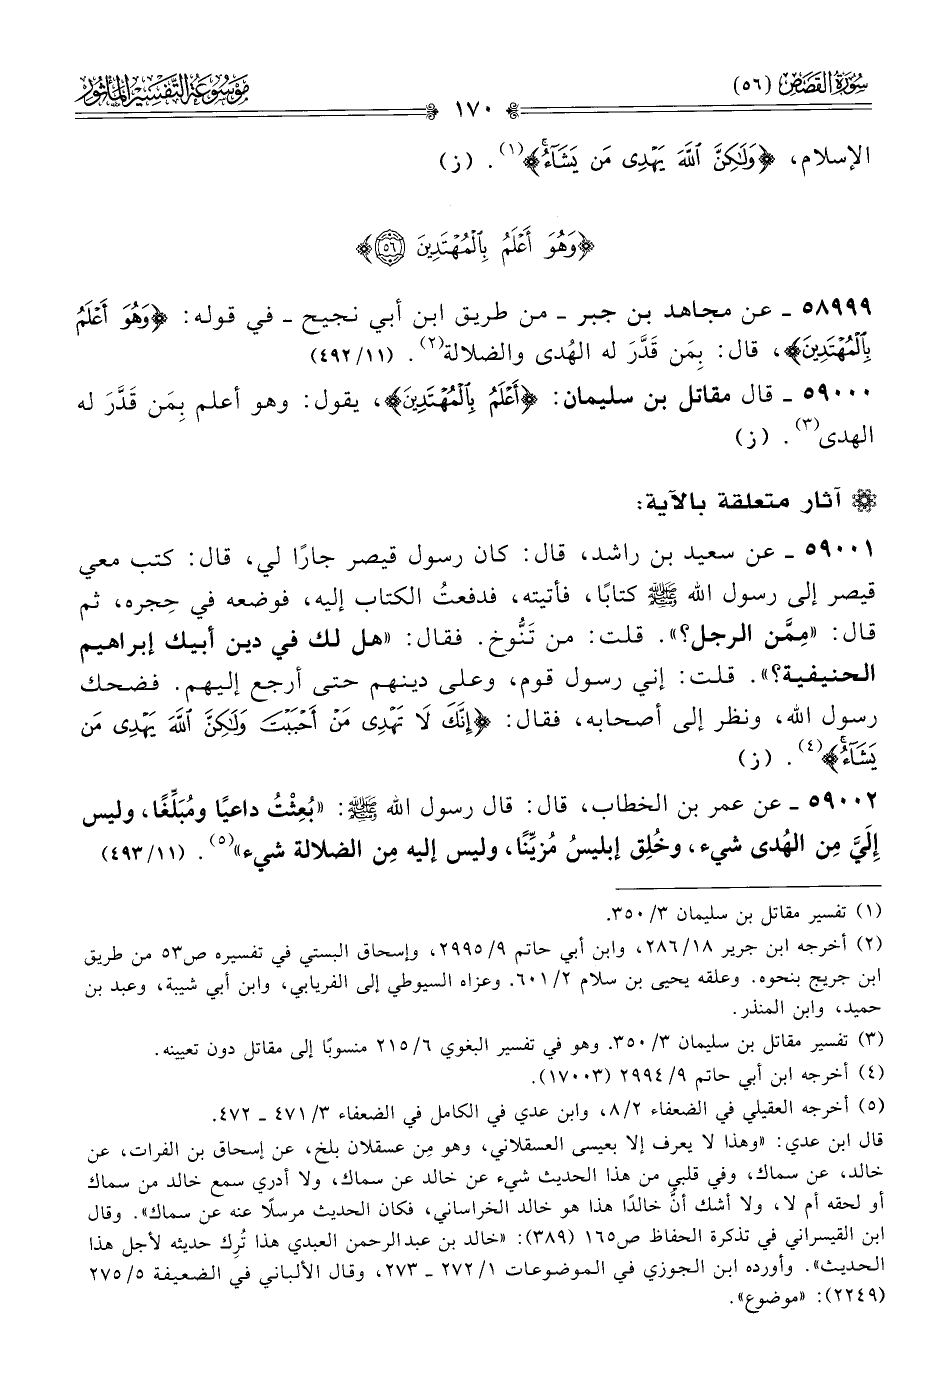 سُورَةُ القَصَصِ (٥٦)
١٧٠
مَوْسُوعَةُ التَّفْسِيرِ المَأْثُورِ
الإسلام، ﴿وَلَٰكِنَّ ٱللَّهَ يَهْدِى مَن يَشَآءُۚ﴾(١). (ز)
﴿وَهُوَ أَعْلَمُ بِٱلْمُهْتَدِينَ ۝٥٦﴾
٥٨٩٩٩ ـ عن مجاهد بن جبر ـ من طريق ابن أبي نجيح ـ في قوله: ﴿وَهُوَ أَعْلَمُ
بِٱلْمُهْتَدِينَ﴾، قال: بِمَن قَدَّرَ له الهُدى والضلالة(٢). (٤٩٢/١١)
٥٩٠٠٠ ـ قال مقاتل بن سليمان: ﴿أَعْلَمُ بِٱلْمُهْتَدِينَ﴾، يقول: وهو أعلم بِمَن قَدَّرَ له
الهدى(٣). (ز)
آثار متعلقة بالآية:
٥٩٠٠١ ـ عن سعيد بن راشد، قال: كان رسول قيصر جارًا لي، قال: كتب معي
قيصر إلى رسول الله ﷺ كتابًا، فأتيته، فدفعتُ الكتاب إليه، فوضعه في حِجره، ثم
قال: «مِمَّن الرجل؟». قلت: من تَنُّوخ. فقال: «هل لك في دين أبيك إبراهيم
الحنيفية؟». قلت: إني رسول قوم، وعلى دينهم حتى أرجع إليهم. فضحك
رسول الله، ونظر إلى أصحابه، فقال: ﴿إِنَّكَ لَا تَهْدِى مَنْ أَحْبَبْتَ وَلَٰكِنَّ ٱللَّهَ يَهْدِى مَن
يَشَآءُۚ﴾(٤). (ز)
٥٩٠٠٢ ـ عن عمر بن الخطاب، قال: قال رسول الله ﷺ: «بُعِثْتُ داعيًا ومُبَلِّغًا، وليس
إلَيَّ مِن الهُدى شيء، وخُلِق إبليسُ مُزيِّنًا، وليس إليه مِن الضلالة شيء»(٥). (٤٩٣/١١)
(١) تفسير مقاتل بن سليمان ٣/ ٣٥٠.
(٢) أخرجه ابن جرير ١٨/ ٢٨٦، وابن أبي حاتم ٩/ ٢٩٩٥، وإسحاق البستي في تفسيره ص٥٣ من طريق
ابن جريج بنحوه. وعلقه يحيى بن سلام ٢/ ٦٠١. وعزاه السيوطي إلى الفريابي، وابن أبي شيبة، وعبد بن
حميد، وابن المنذر.
(٣) تفسير مقاتل بن سليمان ٣/ ٣٥٠. وهو في تفسير البغوي ٦/ ٢١٥ منسوبًا إلى مقاتل دون تعيينه.
(٤) أخرجه ابن أبي حاتم ٩/ ٢٩٩٤ (١٧٠٠٣).
(٥) أخرجه العقيلي في الضعفاء ٢/ ٨، وابن عدي في الكامل في الضعفاء ٣/ ٤٧١ ـ ٤٧٢.
قال ابن عدي: «وهذا لا يعرف إلا بعيسى العسقلاني، وهو مِن عسقلان بلخ، عن إسحاق بن الفرات، عن
خالد، عن سماك، وفي قلبي من هذا الحديث شيء عن خالد عن سماك، ولا أدري سمع خالد من سماك
أو لحقه أم لا، ولا أشك أنَّ خالدًا هذا هو خالد الخراساني، فكان الحديث مرسلًا عنه عن سماك». وقال
ابن القيسراني في تذكرة الحفاظ ص١٦٥ (٣٨٩): «خالد بن عبدالرحمن العبدي هذا تُرِك حديثه لأجل هذا
الحديث». وأورده ابن الجوزي في الموضوعات ١/ ٢٧٢ ـ ٢٧٣، وقال الألباني في الضعيفة ٥/ ٢٧٥
(٢٢٤٩): «موضوع».